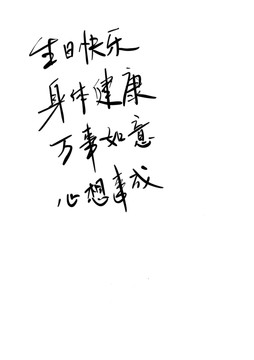 生日快乐
身体健康
万事如意
心想事成